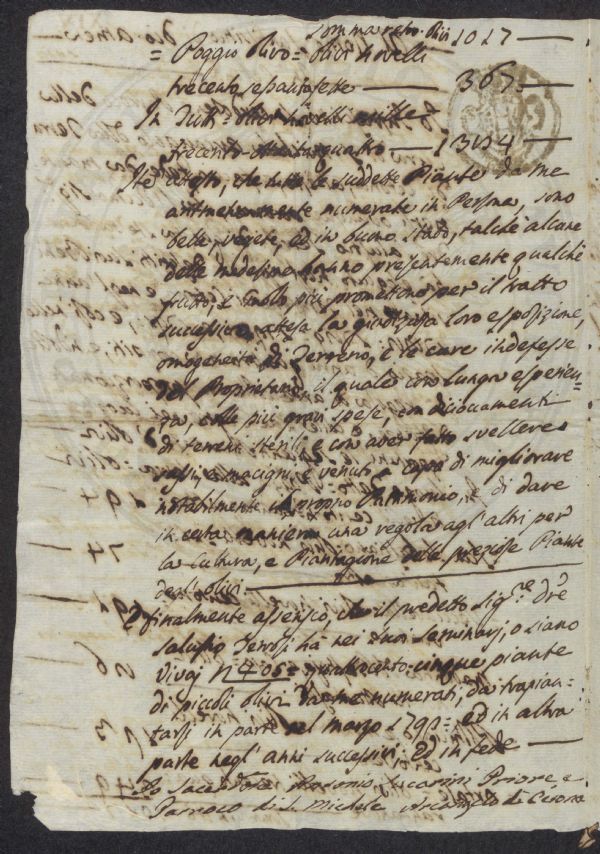 Somma retro. olivi 1017
= Poggio olivo = olivi novelli
trecento sesantasette — 367
In Tutti = olivi novelli mille
trecento ottantaquattro — 1384
attesto, che tutte le suddette Piante da me
numerate in Persona, sono
belle, vegete, ed in buono stato, talchè alcune
delle medesime hanno presentemente qualche
frutto, e molto più promettono per il tratto
successivo attesa la giudiziosa loro esposizione,
omogeneità di Terreno, e le cure indefesse
del Proprietario, il quale con lunga esperien=
za, colle più gravi spese, con dicioccamenti
di terreni sterili, e con aver fatto svellere
sassi, e macigni, è venuto a capo di migliorare
notabilmente il proprio Patrimonio, e di dare
in certa maniera una regola agl'altri per
la Cultura, e Piantagione delle preziose Piante
degli olivi
E finalmente asserisco, che il predetto Sig.re Dre
Salustio Terrosi hà nei suoi Seminarj, o siano
Vivaj N 405 = quattrocento cinque piante
di piccoli olivi da me numerati, da trapian=
tarsi in parte nel marzo 1792 = ed in altra
parte negl'anni successivi: ed in fede
Io Sacerdote Antonio Lucarini Priore, e
Parroco di S. Michele Arcangelo di Cetona